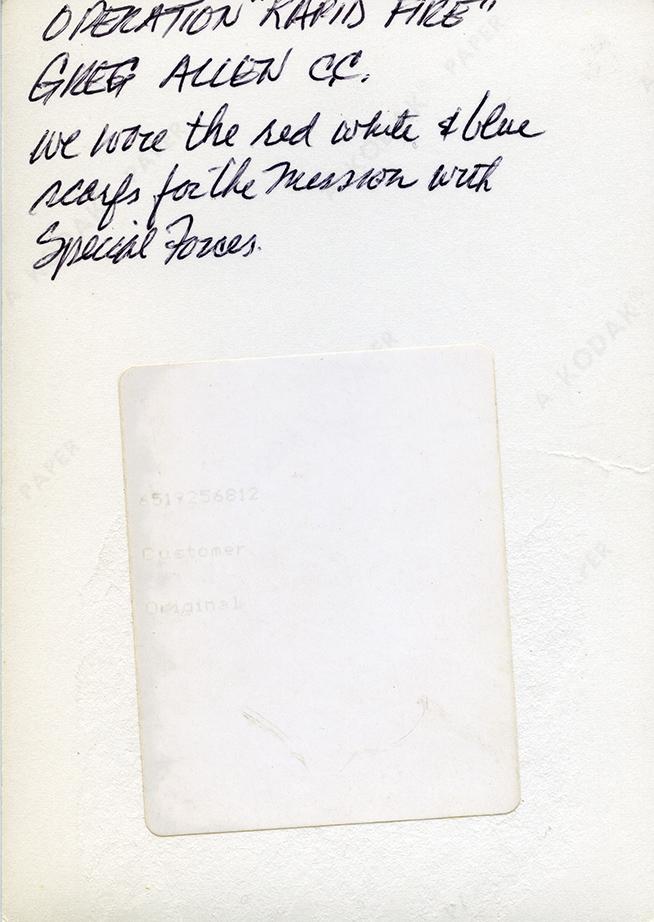 OPERATION "RAPID FIRE"
GREG ALLEN CC.
we wore the red white & blue
scarfs for the Mission with
Special Forces.
PAPER
KODAK
A KODAK
PAPER
6519256812
Customer
Original